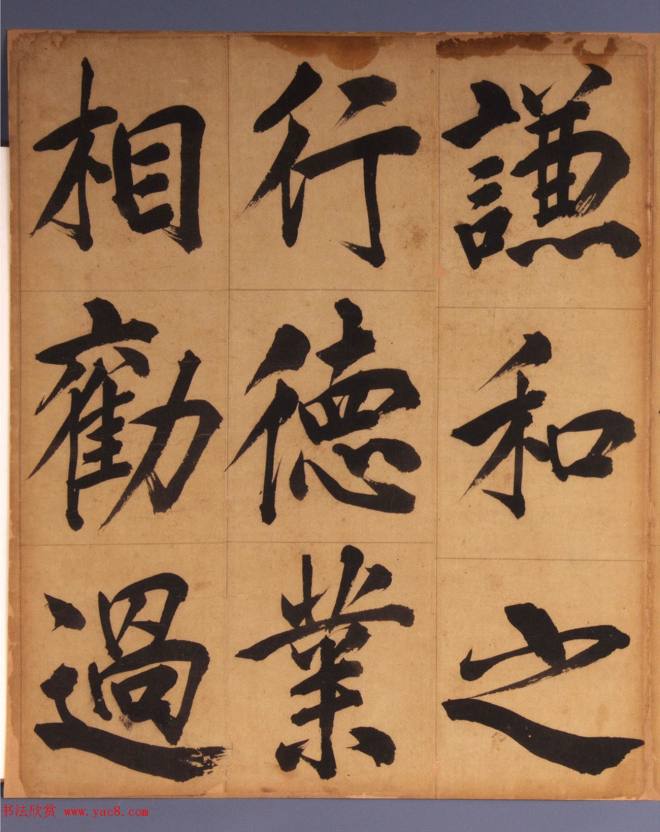 謙和之
行德業
相勸過
书法欣赏 www.yac8.com